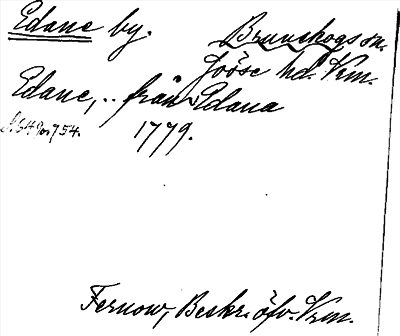 Edane by. Brunskogs sn.
Jösse hd. Vrm.
Edane, .. från Edana
s. 649 o. 754. 1779.
Fernow, Beskr. öfv. Vrm.